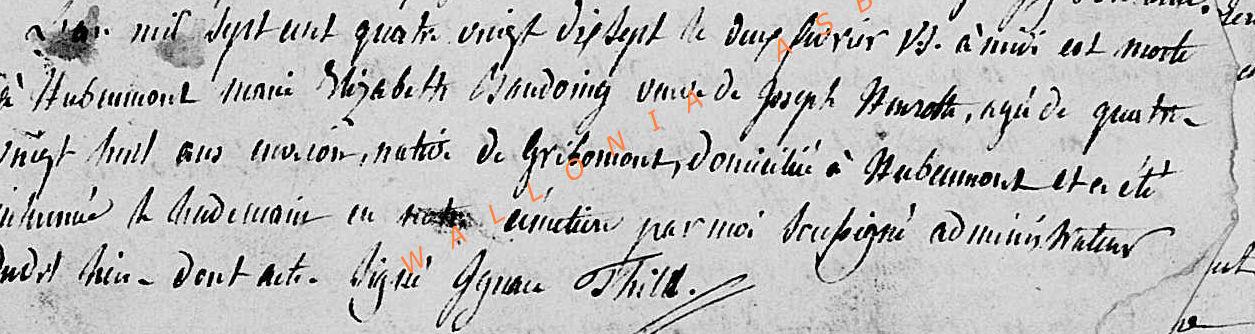 L'an mil sept cent quatre vingt dix sept le deux fevrier vs. à midi est morte
à Hubermont marie Elizabeth Baudoing veuve de Joseph Henrotte, agée de quatre
vingt huit ans environ, native de Gribomont, domiciliée à Hubermont et a été
inhumée le lendemain en notre cimetiere par moi soussigné administrateur
dudit lieu dont acte. Signé Ignace Thill.
WALLONIA ASB